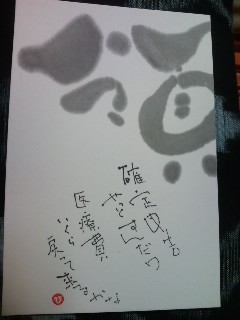 確定申告
やっとすんだゥ
医療費
いくら
戻って来るかな